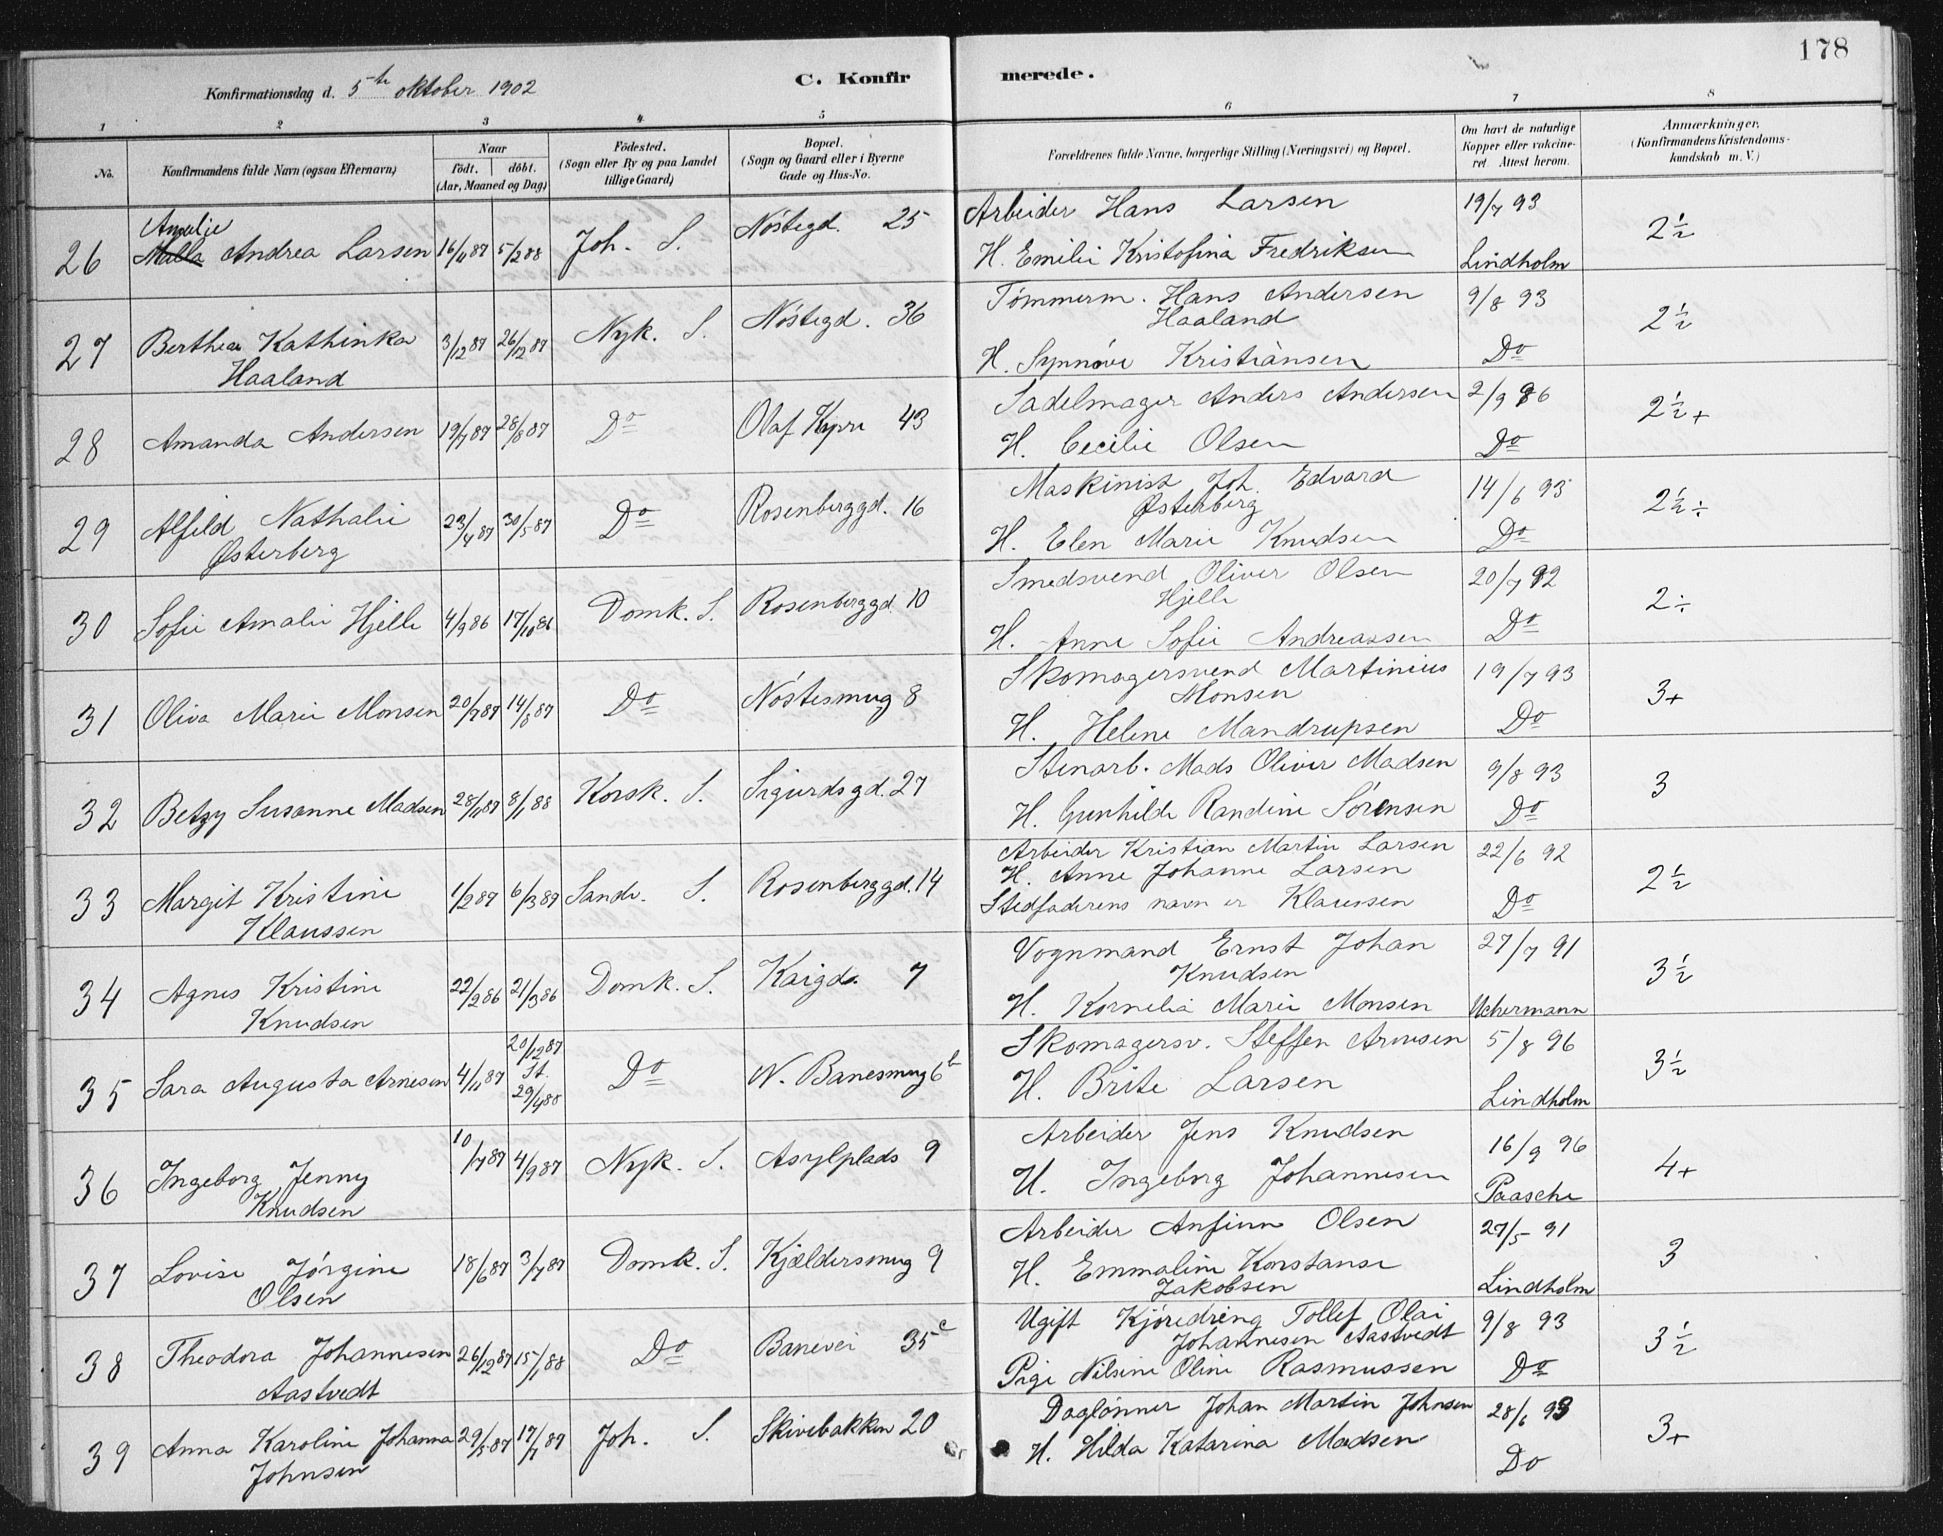 178
Konfirmationsdag d. 5te oktober 1902 C. Konfir merede.
1 2 3 4 5 6 7 8
No.
Konfirmandens fulde Navn (ogsaa Efternavn)
Naar
født. døbt.
(Aar, Maaned og Dag)
Fødested.
(Sogn eller By og paa Landet
tillige Gaard)
Bopæl.
(Sogn og Gaard eller i Byerne
Gade og Hus-No.
Forældrenes fulde Navne, borgerlige Stilling (Næringsvei) og Bopæl.
Om havt de naturlige
Kopper eller vakcine-
ret Attest herom.
Anmærkninger.
(Konfirmandens Kristendoms-
kundskab m. V.)
Amalie
26 Malla Andrea Larsen 16/11 87 5/2 88 Joh. S. Nøstegd. 25 Arbeider Hans Larsen 19/7 93 2½
H. Emilie Kristofina Fredriksen Lindholm
27 Berthea Kathinka 3/12 87 26/12 87 Nyk. S. Nøstegd. 36 Tømmerm. Hans Andersen 9/8 93 2½
Haaland Haaland
H. Synnøve Kristiansen Do
28 Amanda Andersen 19/7 87 28/8 87 Do Olaf Kyrre 43 Sadelmager Anders Andersen 2/9 86 2½+
H. Cecilie Olsen Do
29 Alfild Nathalie 23/4 87 30/5 87 Do Rosenberggd. 16 Maskinist Joh. Edvard 14/6 93 2½÷
Østerberg Østerberg
H. Elen Marie Knudsen Do
30 Sofie Amalie Hjelle 4/9 86 17/10 86 Domk. S. Rosenberggd. 10 Smedsvend Oliver Olsen 20/7 92 2÷
Hjelle
H. Anne Sofie Andreassen Do
31 Oliva Marie Monsen 20/7 87 14/8 87 Do Nøstesmug 8 Skomagersvend Martinius 19/7 93 3+
Monsen
H. Helene Mandrupsen Do
32 Betzy Susanne Madsen 28/11 87 8/1 88 Korsk. S. Sigurdsgd. 27 Stenarb. Mads Oliver Madsen 9/8 93 3
H. Gunhilde Randine Sørensen Do
33 Margit Kristine 1/2 87 6/3 87 Sandv. S. Rosenberggd. 14 Arbeider Kristian Martin Larsen 22/6 92 2½
Klaussen H. Anne Johanne Larsen
Stedfaderens navn er Klaussen Do
34 Agnes Kristine 22/2 86 21/3 86 Domk. S. Kaigd. 7 Vognmand Ernst Johan 27/7 91 3½
Knudsen Knudsen
H. Kornelia Marie Monsen Uchermann
35 Sara Augusta Arnesen 4/11 87 20/12 87 St. 29/4 88 Do N. Banesmug 6b Skomagersv. Steffen Arnesen 5/8 96 3½
H. Brite Larsen Lindholm
36 Ingeborg Jenny 10/7 87 4/9 87 Nyk. S. Asylplads 9 Arbeider Jens Knudsen 16/9 96 4+
Knudsen H. Ingeborg Johannesen Paasche
37 Lovise Jørgine 18/6 87 3/7 87 Domk. S. Kjældersmug 9 Arbeider Anfinn Olsen 27/5 91 3
Olsen H. Emmaline Konstanse
Jakobsen Lindholm
38 Theodora Johannesen 26/12 87 15/1 88 Do Banevei 35c Ugift Kjøredreng Tollef Olai 9/8 93 3½
Aastvedt Johannesen Aastvedt
Pige Nilsine Oline Rasmussen Do
39 Anna Karoline Johanna 29/5 87 17/7 87 Joh. S. Skivebakken 20 Daglønner Johan Martin Johnsen 28/6 93 3+
Johnsen H. Hilda Katarina Madsen Do